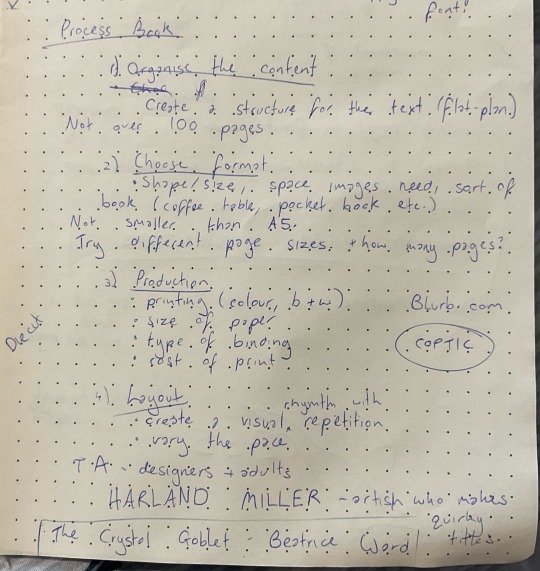 font!
Process Book
1) Organise the content
Create a structure for the text (flat-plan)
Not over 100 pages
2) Choose format
• Shape/size, space images need, sort of
book (coffee table, pocket book etc.)
Not smaller than A5.
Try different page sizes. + how many pages?
3) Production
• printing (colour, b+w) Blurb.com
• size of paper
• type of binding COPTIC
• cost of print
Diecut
4) Layout
rhymth with
• create a visual repetition
• vary the pace
T.A - designers + adults
HARLAND MILLER - artish who makes
quirky
titles
The Crystol Goblet - Beatrice Ward